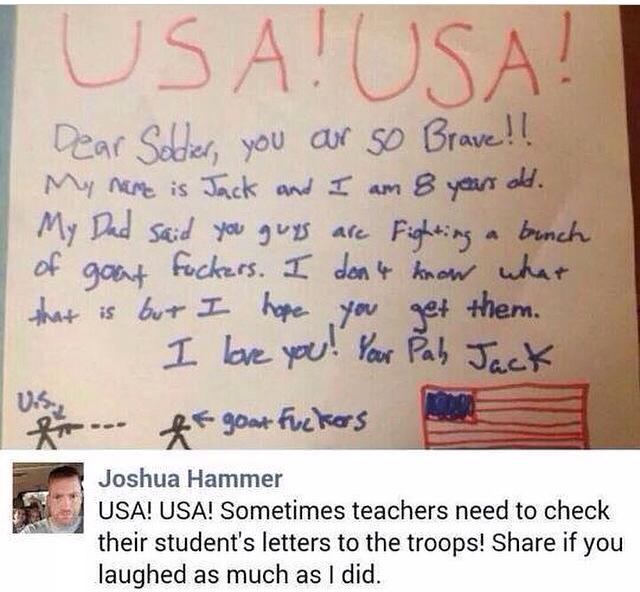 USA! USA!
Dear Soldier, you our so Brave!!
My name is Jack and I am 8 years old.
My Dad said you guys are Fighting a bunch
of goat fuckers. I don't know what
that is but I hope you get them.
I love you! Your Pal, Jack
U.S.
goat fuckers
Joshua Hammer
USA! USA! Sometimes teachers need to check
their student's letters to the troops! Share if you
laughed as much as I did.